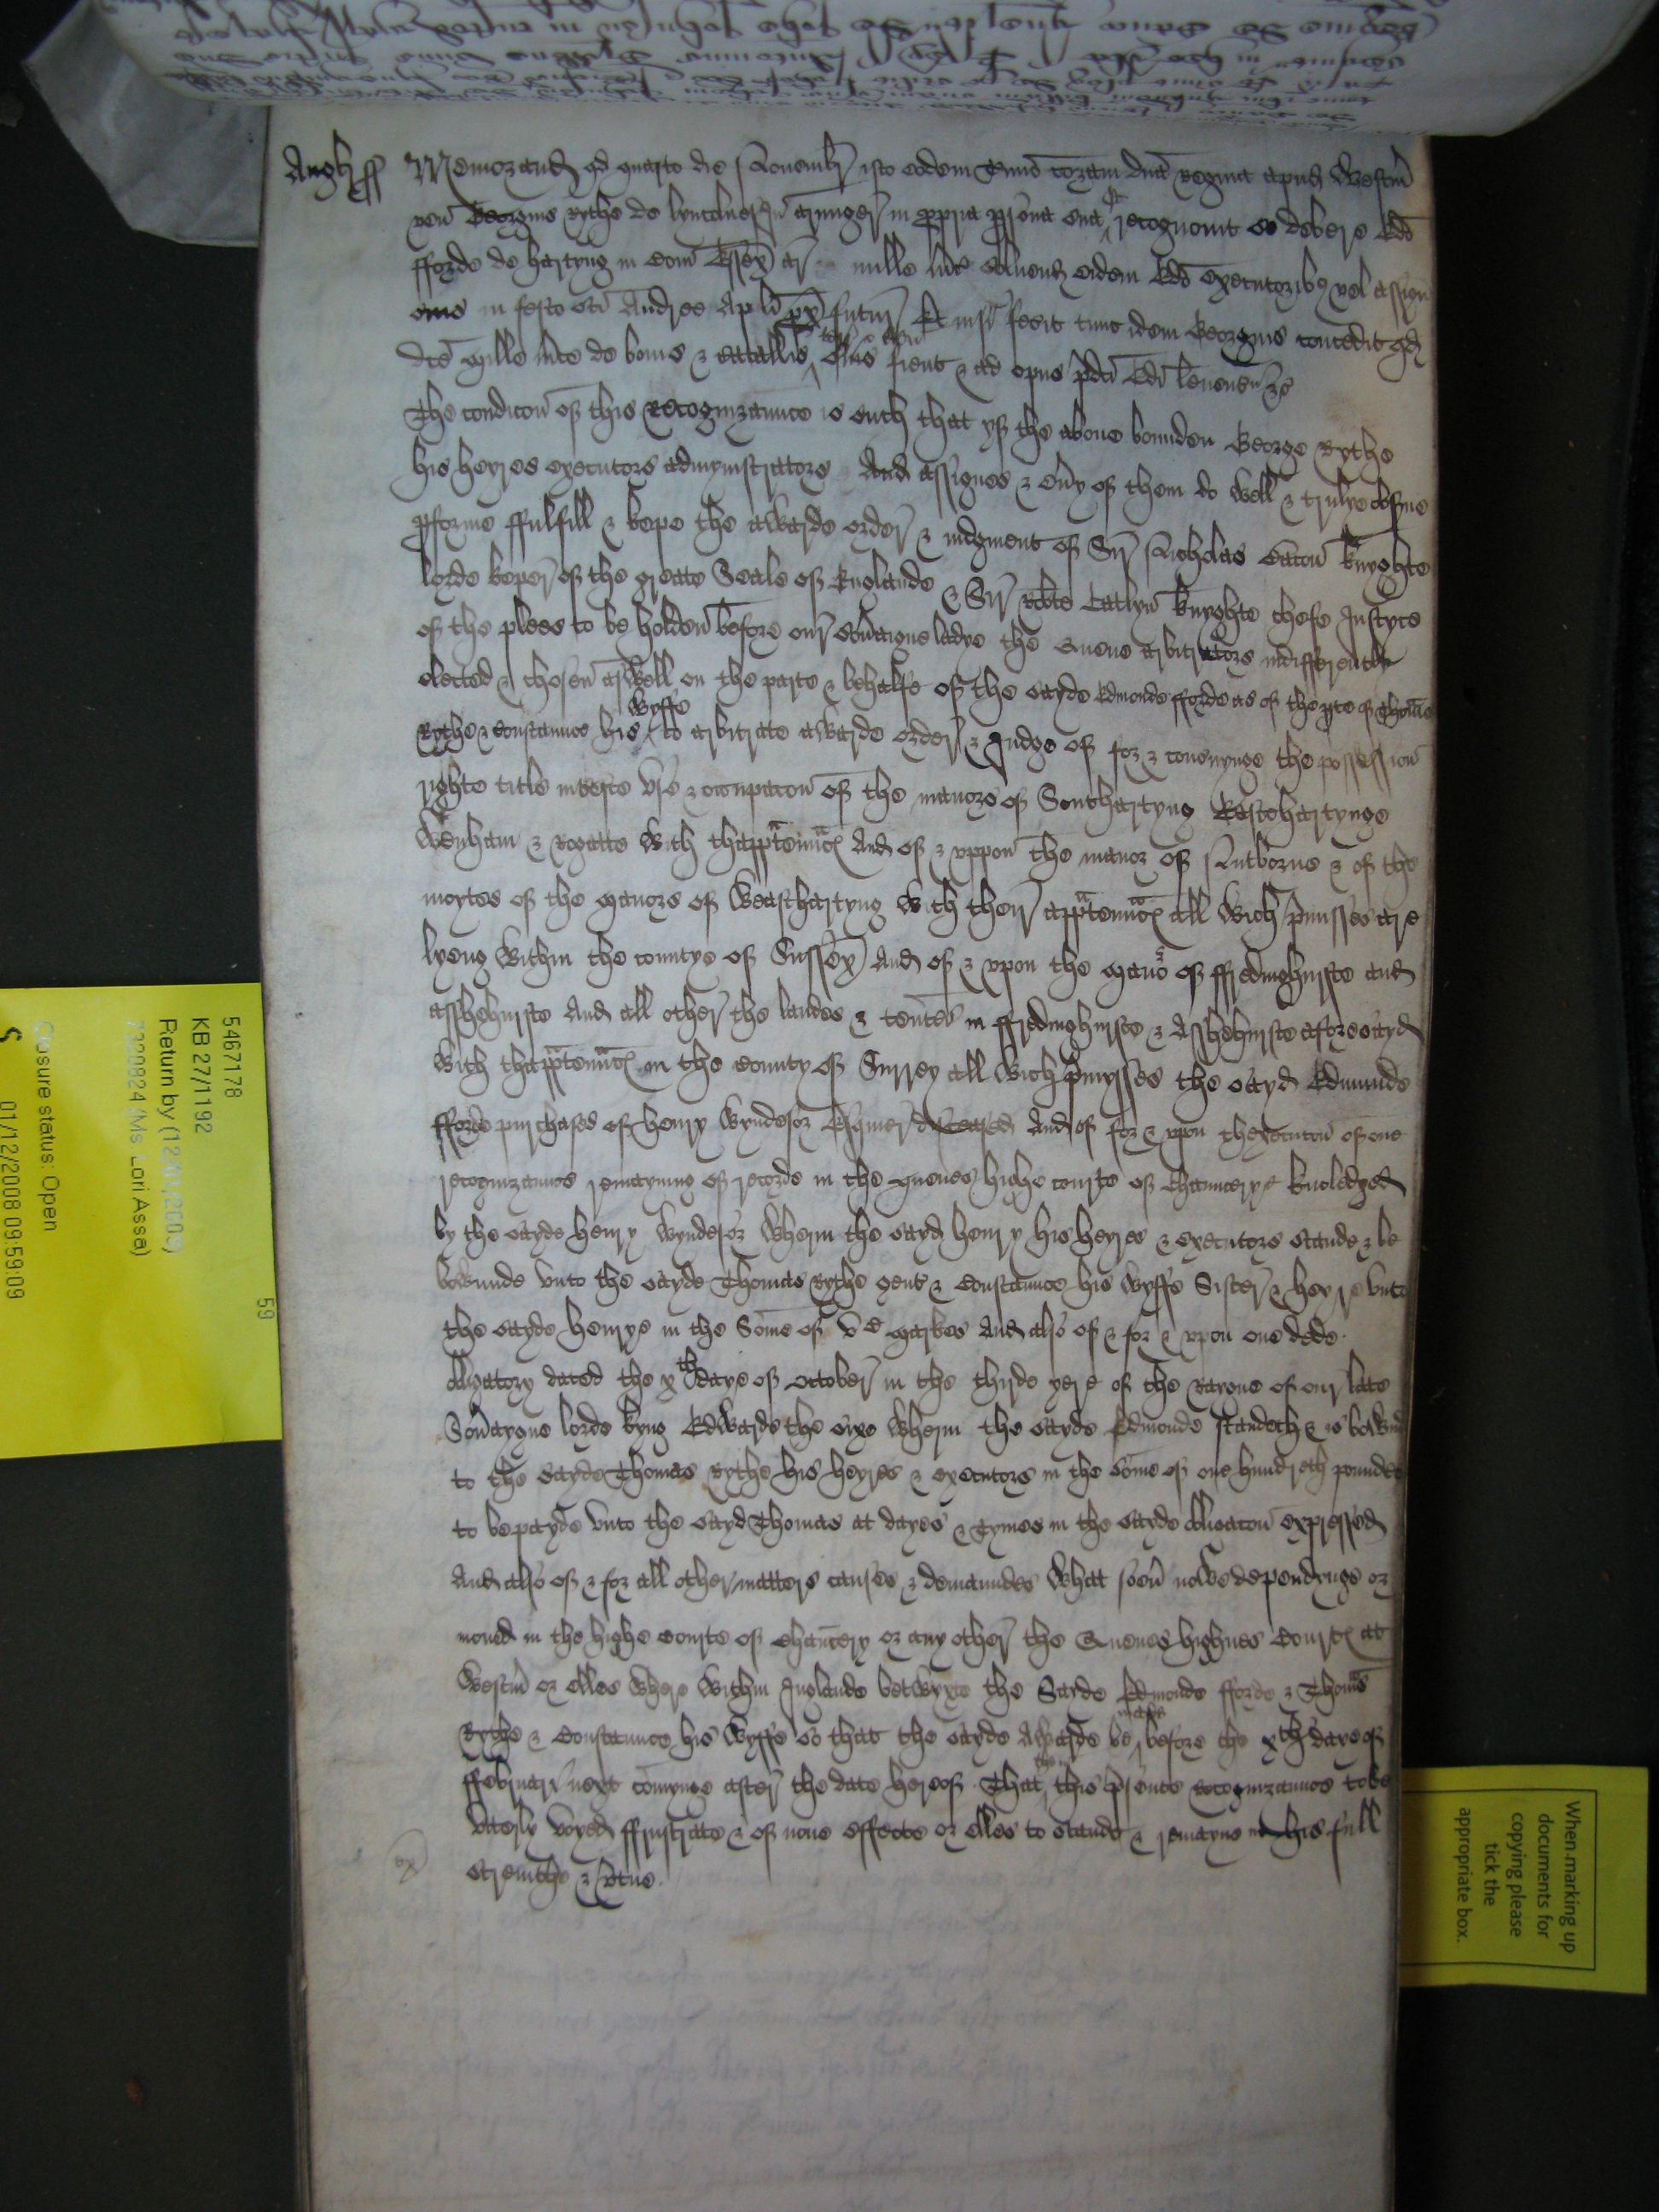 Angl ss Memorand qd quarto die Novembr isto eodem Timo coram dna regina apud Westm
ven Georgius Rythe de in propria persona sua & recognovit se debere Edo
fforde de hartyng in com Essex ar mille libr solvend eidem Edo executoribz vel assign
suis in festo sci Andree Apli px futur Et nisi fecit tunc idem Georgius concedit qd
dce mille libre de bonis & catallis terr & ten suis fient & ad opus pdci Edi levenr &c
The condicon of this Recognizaunce is such that yf the above bounden George Rythe
his heyres executors admynistrators And assignes & evy of them do well & trulye obsrve
pforme ffulfill & kepe the awarde order & iudgment of Sir Nicholas Bacon knyghte
lorde keper of the greate Seale of Englande & Sir Robte Catlyn knyghte chefe Justyce
of the plees to be holden before our Sovaigne ladye the Quene arbitrators indifferently
elected & chosen aswell on the parte & behalfe of the sayde Edmonde fforde as of the pte of Thoms
Rythe & Constaunce his wyffe to arbitrate awarde order & Judge of for & concnynge the possession
righte title intreste use & occupacon of the manors of Southartyng Eastehartynge
Wenham & Rogatte with thapptennces And of & uppon the manor of Nutborne & of the
moytes of the manors of Weasthartyng with their apptennces all wich pmisses are
lyeng within the countye of Sussex And of & upon the manor of ffredinghurste and
asshehurste And all other the landes & tentes in ffredinghurste & Asshehurste aforesayd
with thapptennces in the County of Surrey all wich pmysses the sayd Edmunde
fforde purchased of henry Wyndesor Esquier deceased And of for & upon thexecucon of one
recognizaunce remayning of recorde in the quenes highe courte of Chauncerye knoledged
by the sayde henry Wyndesor wherin the sayd henry his heyres & executors stande & be
bowunde unto the sayde Thomas Rythe gent & Constaunce his wyffe Sister & heyre unto
the sayde henrye in the Some of vc markes And also of & for & upon one dede
obligatory dated the xth daye of october in the thirde yere of the Raygne of our late
Sovaygne lorde kyng Edwarde the sixe wherin the sayde Edmonde standeth & is bownd
to the sayde Thomas Rythe his heyres & executors in the some of one hundreth poundes
to be payde unto the sayd Thomas at dayes & tymes in the sayde obligacon expressed
And also of & for all other matters causes & demaundes what soevr nowe dependynge or
moved in the highe Courte of Chauncery or any other the Quenes highnes Courtes at
Westm or elles where within Inglande betwyxte the Sayde Edmonde fforde & Thoms
Rythe & Constaunce his wyffe so that the sayde Awarde be made before the xth daye of
ffebruary next comynge after the date hereof That then this psente recognizaunce to be
Utterly voyed ffrustrate & of none effecte or elles to stande & remayne in his full
strenthe & vtue.
5467178
KB 27/1192
Return by (12/01/2009)
7320824 (Ms. Lori Assa)
Closure status: Open
01/12/2008 09:59:09
S
59
When marking up
documents for
copying please
tick the
appropriate box.